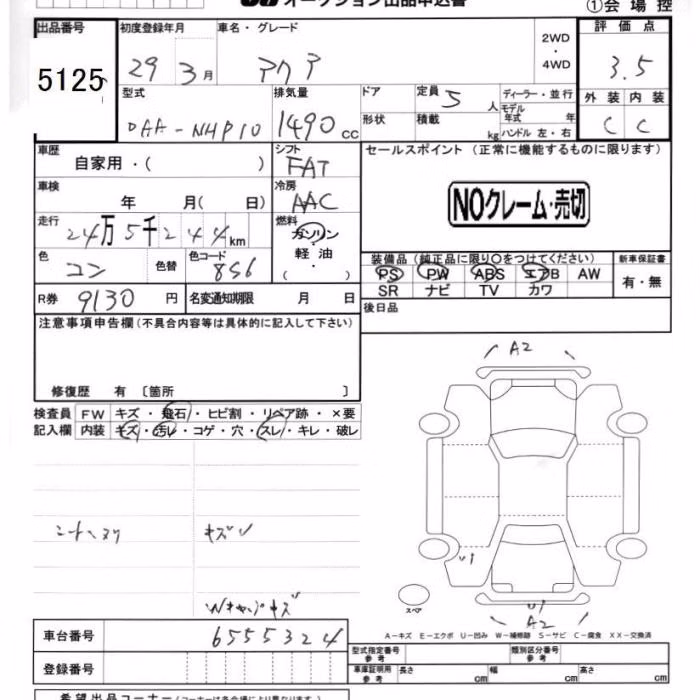 オークション出品申込書
①会場控
出品番号
5125
初度登録年月
29 3月
車名・グレード
アクア
2WD
・
4WD
評価点
3.5
型式
DAA-NHP10
排気量
1490cc
ドア
形状
定員 5人
積載 kg
ディーラー・並行
モデル年式 年
ハンドル 左・右
外装 内装
C C
車歴
自家用・( )
シフト
FAT
セールスポイント (正常に機能するものに限ります)
NOクレーム・売切
車検
年 月( 日)
冷房
AAC
走行
24万5千244km
燃料
ガソリン
軽油
( ・ )
色
コン
色替
色コード
8S6
装備品 (純正品に限り〇をつけてください)
PS PW ABS エアB AW
SR ナビ TV カワ
新車保証書
有・無
R券 9130円
名変通知期限 月 日
後日品
注意事項申告欄 (不具合内容等は具体的に記入して下さい)
修復歴 有 〔箇所 〕
検査員
記入欄
FW キズ・飛石・ヒビ割・リペア跡・×要
内装 キズ・汚レ・コゲ・穴・スレ・キレ・破レ
A2
シートスレ
キズU
Wキャップキズ
U1
スペア
U1
A2
A-キズ E-エクボ U-凹み W-補修跡 S-サビ C-腐食 XX-交換済
車台番号 6555324
登録番号
型式指定番号
参考
類別区分番号
参考
車庫証明用
参考
長さ cm 幅 cm 高さ cm
希望出品コーナー